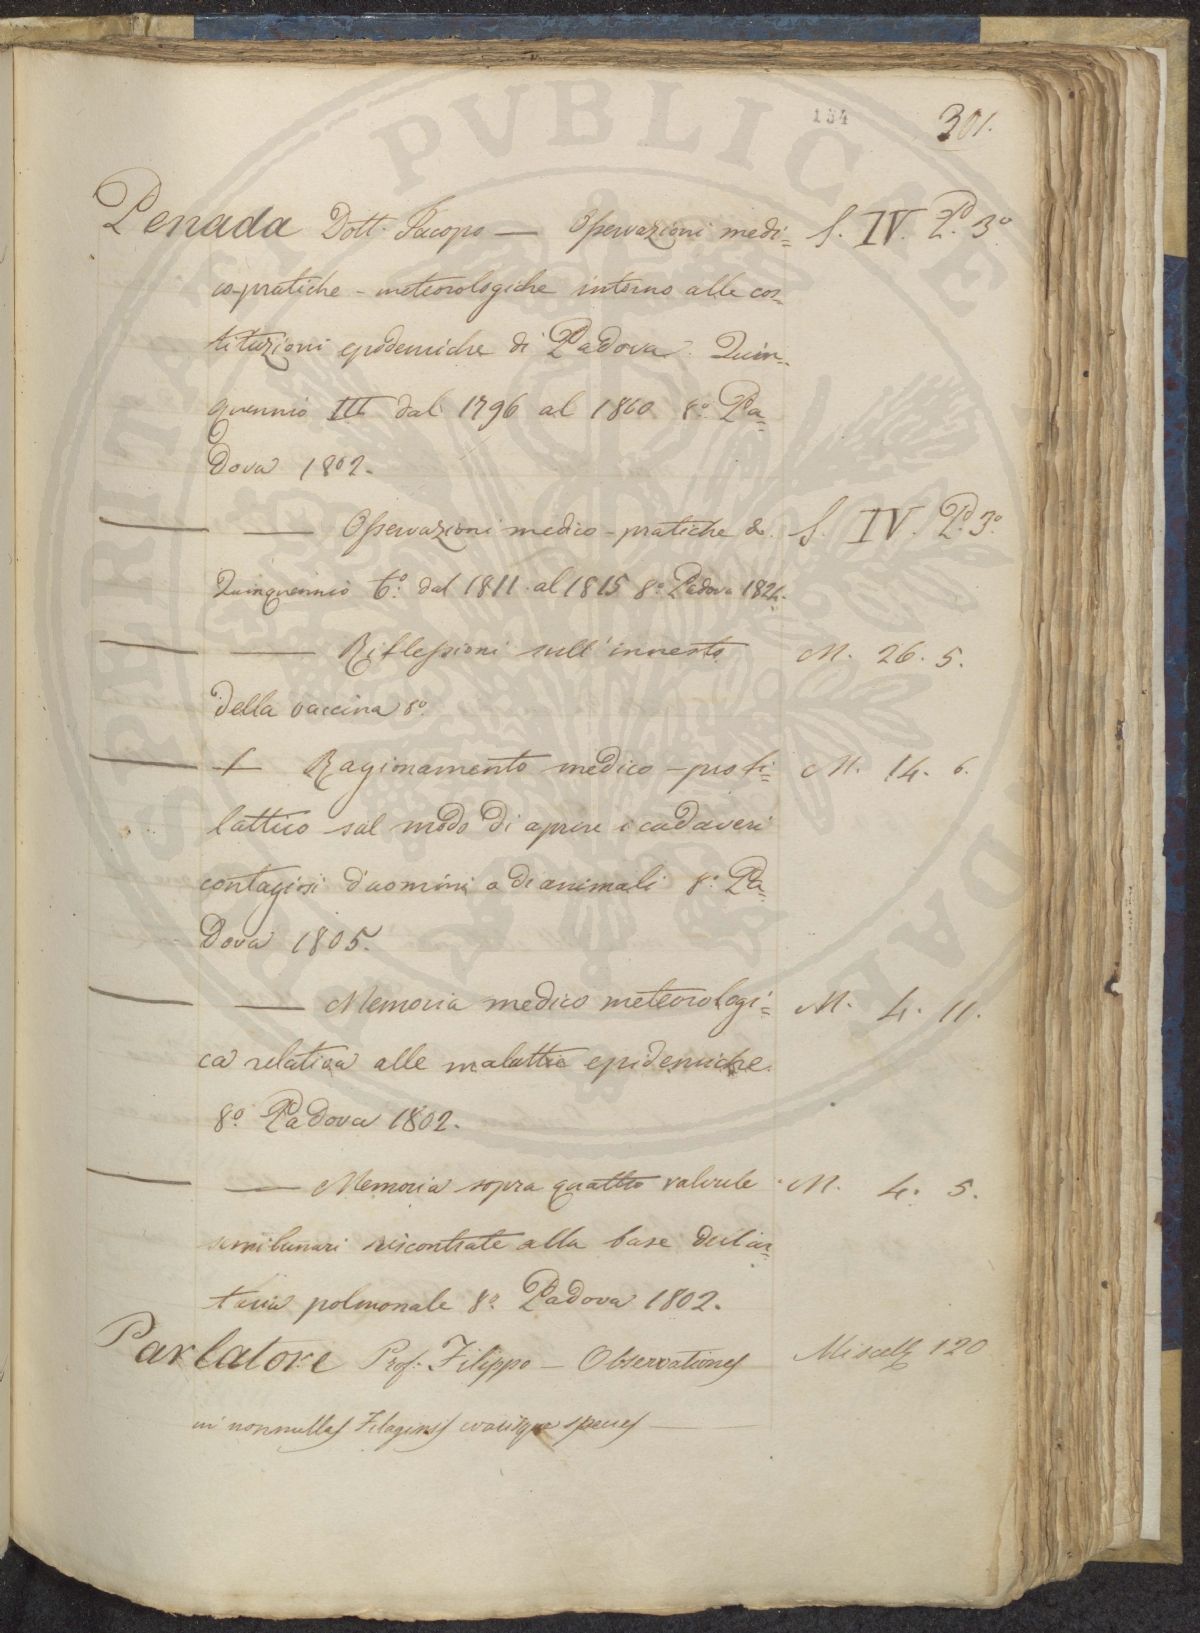 154
301.
Penada Dott. Jacopo — Osservazioni medi= S. IV. P.º 3º
co-pratiche-meteorologiche intorno alle cos=
tituzioni epidemiche di Padova. Quin=
quennio III dal 1796 al 1800 8º Pa=
dova 1802.
— — Osservazioni medico-pratiche &. S. IV. P.º 3º
Quinquennio 6º. dal 1811. al 1815 8º Padova 1824.
— — Riflessioni sull'innesto M. 26. 5.
della vaccina 8º.
— — Ragionamento medico-profi= M. 14. 6.
lattico sul modo di aprire i cadaveri
contagiosi d'uomini o di animali 8º. Pa=
dova 1805.
— — Memoria medico meteorologi= M. 4. 11.
ca relativa alle malattie epidemiche.
8º. Padova 1802.
— — Memoria sopra quattro valvule M. 4. 5.
semilunari riscontrate alla base dell'ar=
teria polmonale 8º. Padova 1802.
Parlatore Prof. Filippo — Observationes Miscell. 120
in nonnullas Filaginis species —
PVBLICAE
PROSPERITATI